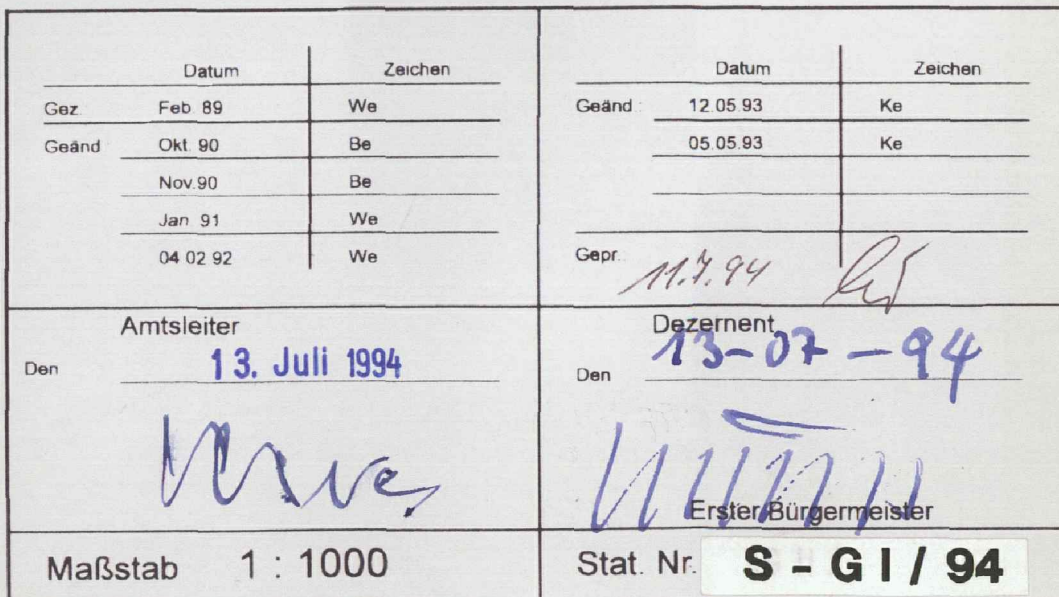 Datum Zeichen
Gez. Feb 89 We
Geänd Okt. 90 Be
Nov.90 Be
Jan 91 We
04 02 92 We
Datum Zeichen
Geänd.: 12.05.93 Ke
05.05.93 Ke
Gepr.: 11.7.94
Amtsleiter
Den 13. Juli 1994
Dezernent
Den 13-07-94
Erster Bürgermeister
Maßstab 1 : 1000
Stat. Nr. S - G I / 94